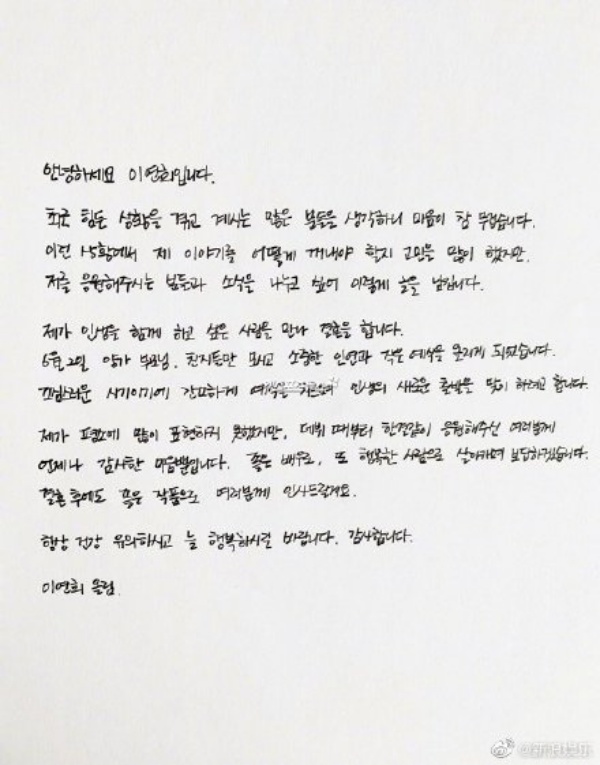 안녕하세요 이연희입니다.
최근 힘든 상황을 겪고 계시는 많은 분들을 생각하니 마음이 참 무겁습니다.
이런 상황에서 제 이야기를 어떻게 꺼내야 할지 고민을 많이 했지만,
저를 응원해주시는 분들과 소식을 나누고 싶어 이렇게 글을 남깁니다.
제가 인생을 함께 하고 싶은 사람을 만나 결혼을 합니다.
6월 2일 양가 부모님, 친지들만 모시고 소중한 인연과 작은 예식을 올리게 되었습니다.
조심스러운 시기이기에 간소하게 예식을 치르며 인생의 새로운 출발을 맞이 하려고 합니다.
제가 평소에 많이 표현하지 못했지만, 데뷔 때부터 한결같이 응원해주신 여러분께
언제나 감사한 마음뿐입니다. 좋은 배우로, 또 행복한 사람으로 살아가며 보답하겠습니다.
결혼 후에도 좋은 작품으로 여러분께 인사드릴게요.
항상 건강 유의하시고 늘 행복하시길 바랍니다. 감사합니다.
이연희 올림.
@新浪娱乐